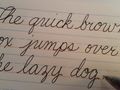 The quick brown
ox jumps over
he lazy dog